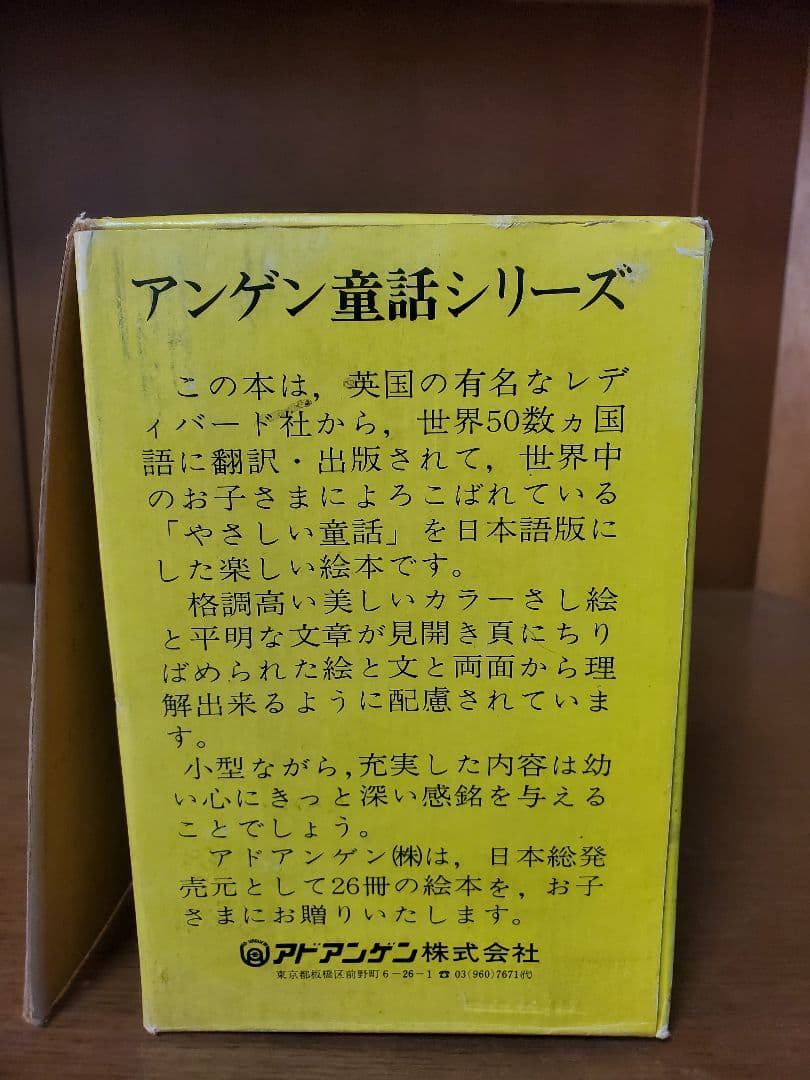 アンゲン童話シリーズ
この本は，英国の有名なレデ
ィバード社から，世界50数ヵ国
語に翻訳・出版されて，世界中
のお子さまによろこばれている
「やさしい童話」を日本語版に
した楽しい絵本です。
格調高い美しいカラーさし絵
と平明な文章が見開き頁にちり
ばめられた絵と文と両面から理
解出来るように配慮されていま
す。
小型ながら，充実した内容は幼
い心にきっと深い感銘を与える
ことでしょう。
アドアンゲン㈱は，日本総発
売元として26冊の絵本を，お子
さまにお贈りいたします。
アドアンゲン株式会社
東京都板橋区前野町6−26−1 ☎ 03(960)7671㈹